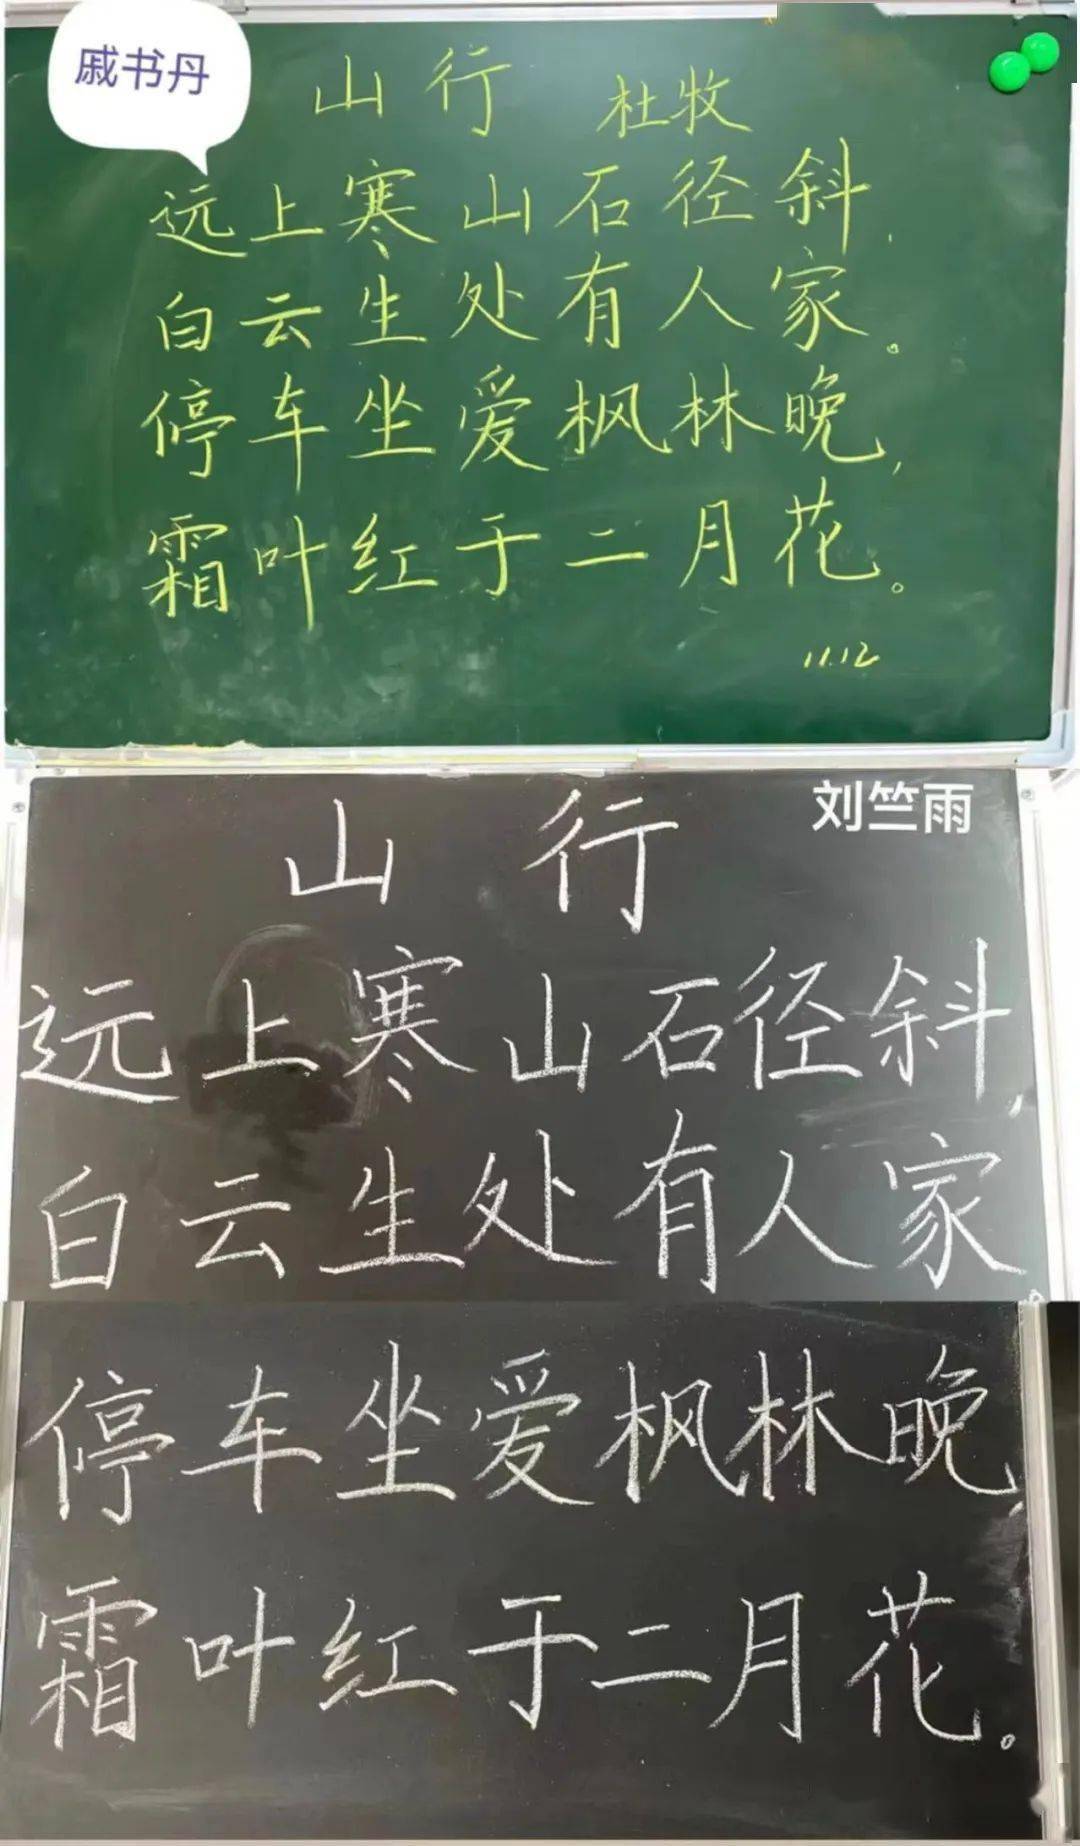 戚书丹
山行 杜牧
远上寒山石径斜,
白云生处有人家。
停车坐爱枫林晚,
霜叶红于二月花。
11.12
刘竺雨
山行
远上寒山石径斜,
白云生处有人家
停车坐爱枫林晚,
霜叶红于二月花。